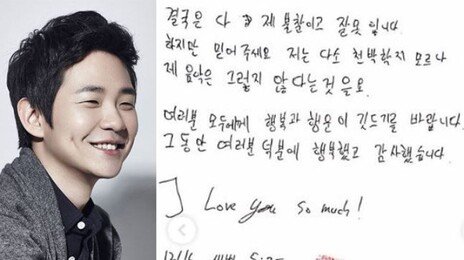 결국은 다 제 불찰이고 잘못 입니다
하지만 믿어주세요 저는 다소 천박할지 모르나
제 음악은 그렇지 않다는것을요
여러분 모두에게 행복과 행운이 깃드기를 바랍니다
그동안 여러분 덕분에 행복했고 감사했습니다
I Love you so much!